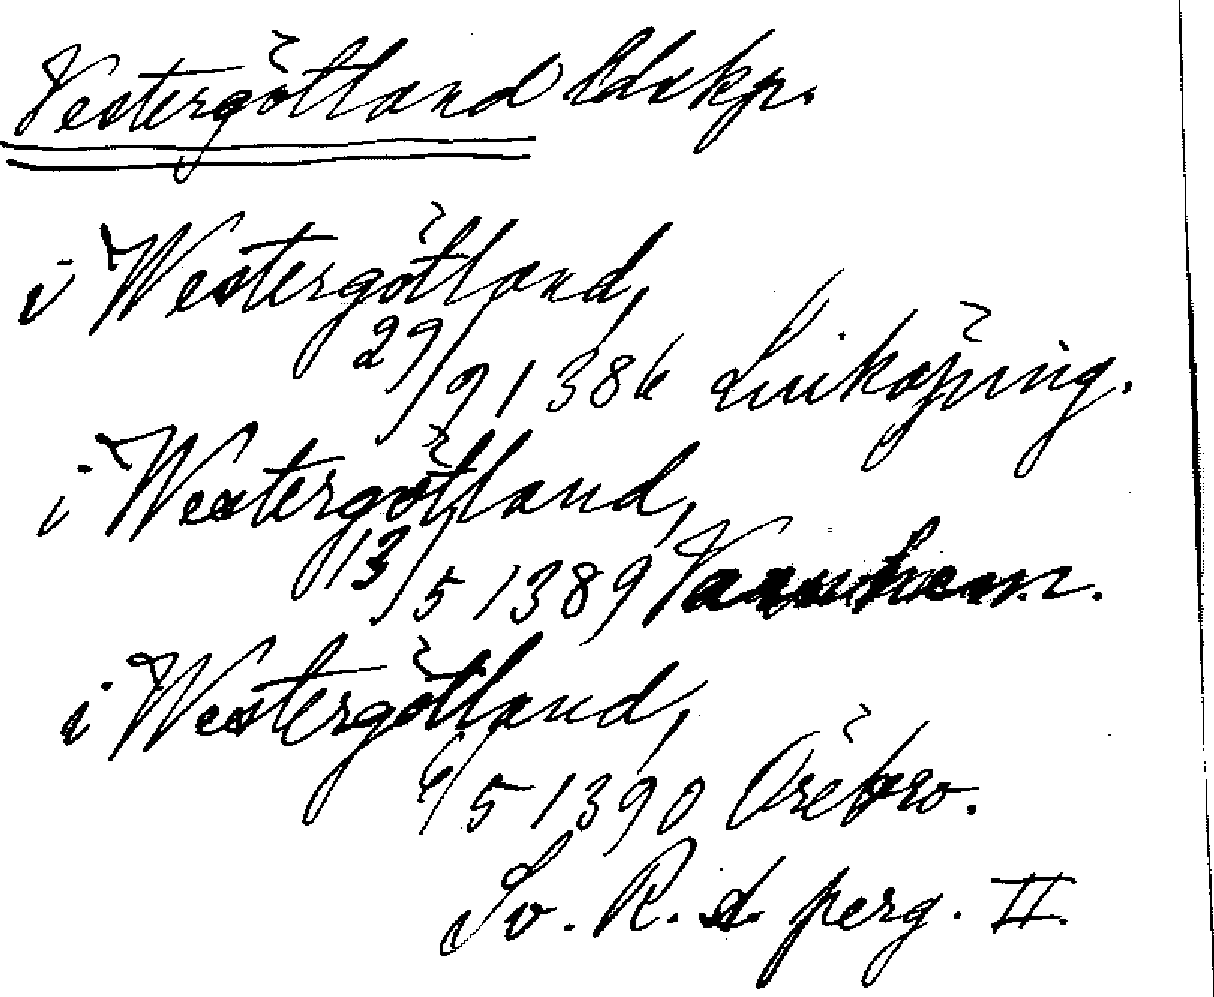 Vestergötland ldskp.
i Westergötland,
29/9 1386 Linköping.
i Westergötland,
13/5 1389 Varnhem.
i Westergötland,
6/5 1390 Örebro.
Sv. R. d. perg. II.